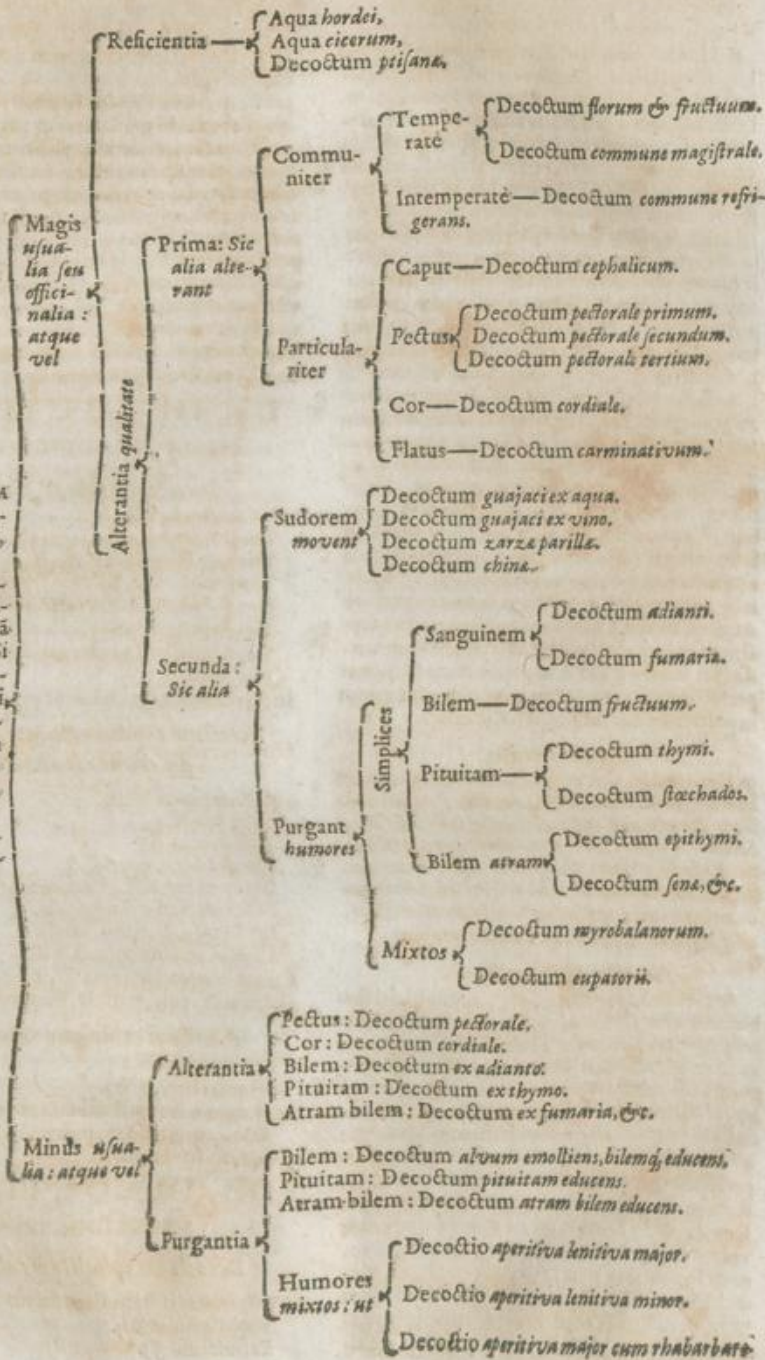 Reficientia
Aqua hordei,
Aqua cicerum,
Decoctum ptisanæ.
Magis
usua-
lia seu
offici-
nalia :
atque
vel
Alterantia qualitate
Prima: Sic
alia alte-
rant
Commu-
niter
Tempe-
ratè
Decoctum florum & fructuum.
Decoctum commune magistrale.
Intemperatè—Decoctum commune refri-
gerans.
Particula-
riter
Caput—Decoctum cephalicum.
Pectus
Decoctum pectorale primum.
Decoctum pectorale secundum.
Decoctum pectorale tertium.
Cor—Decoctum cordiale.
Flatus—Decoctum carminativum.
Secunda :
Sic alia
Sudorem
movent
Decoctum guajaci ex aqua.
Decoctum guajaci ex vino.
Decoctum zarzæ parillæ.
Decoctum chinæ.
Purgant
humores
Simplices
Sanguinem
Decoctum adianti.
Decoctum fumariæ.
Bilem—Decoctum fructuum.
Pituitam—
Decoctum thymi.
Decoctum stœchados.
Bilem atram
Decoctum epithymi.
Decoctum senæ, &c.
Mixtos
Decoctum myrobalanorum.
Decoctum eupatorii.
Minùs usua-
lia : atque vel
Alterantia
Pectus : Decoctum pectorale.
Cor : Decoctum cordiale.
Bilem : Decoctum ex adianto.
Pituitam : Decoctum ex thymo.
Atram bilem : Decoctum ex fumaria, &c.
Purgantia
Bilem : Decoctum alvum emolliens, bilemq́; educens.
Pituitam : Decoctum pituitam educens.
Atram bilem : Decoctum atram bilem educens.
Humores
mixtos : ut
Decoctio aperitiva lenitiva major.
Decoctio aperitiva lenitiva minor.
Decoctio aperitiva major cum rhabarbaro